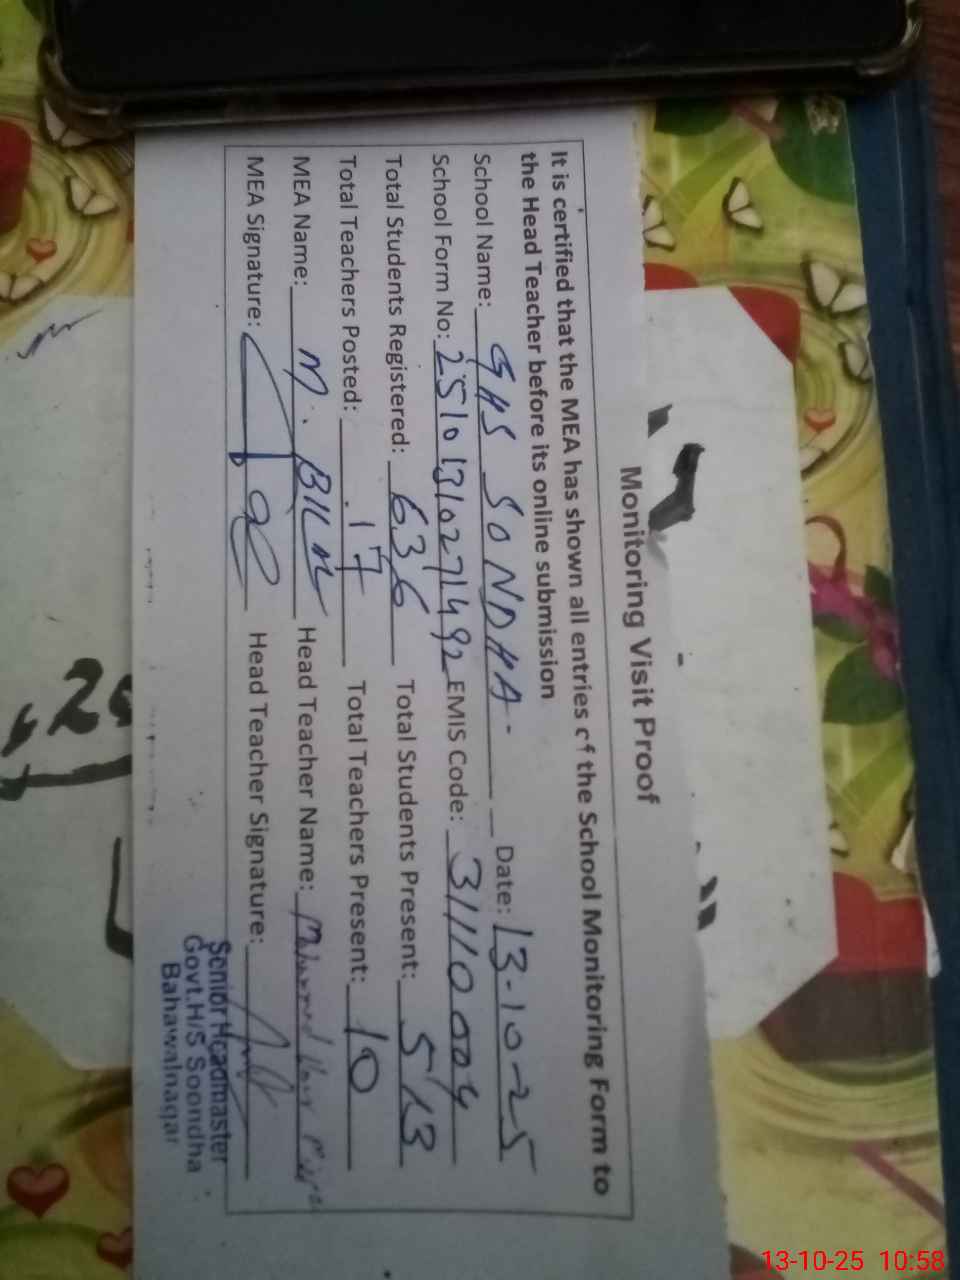 Monitoring Visit Proof
It is certified that the MEA has shown all entries of the School Monitoring Form to
the Head Teacher before its online submission
School Name: GHS SONDHA- Date: 13-10-25
School Form No: 2510131027492 EMIS Code: 31110004
Total Students Registered: 636 Total Students Present: 513
Total Teachers Posted: 17 Total Teachers Present: 10
MEA Name: M. Head Teacher Name:
MEA Signature: Head Teacher Signature:
Senior Headmaster
Govt.H/S Soondha
Bahawalnagar
13-10-25 10:58